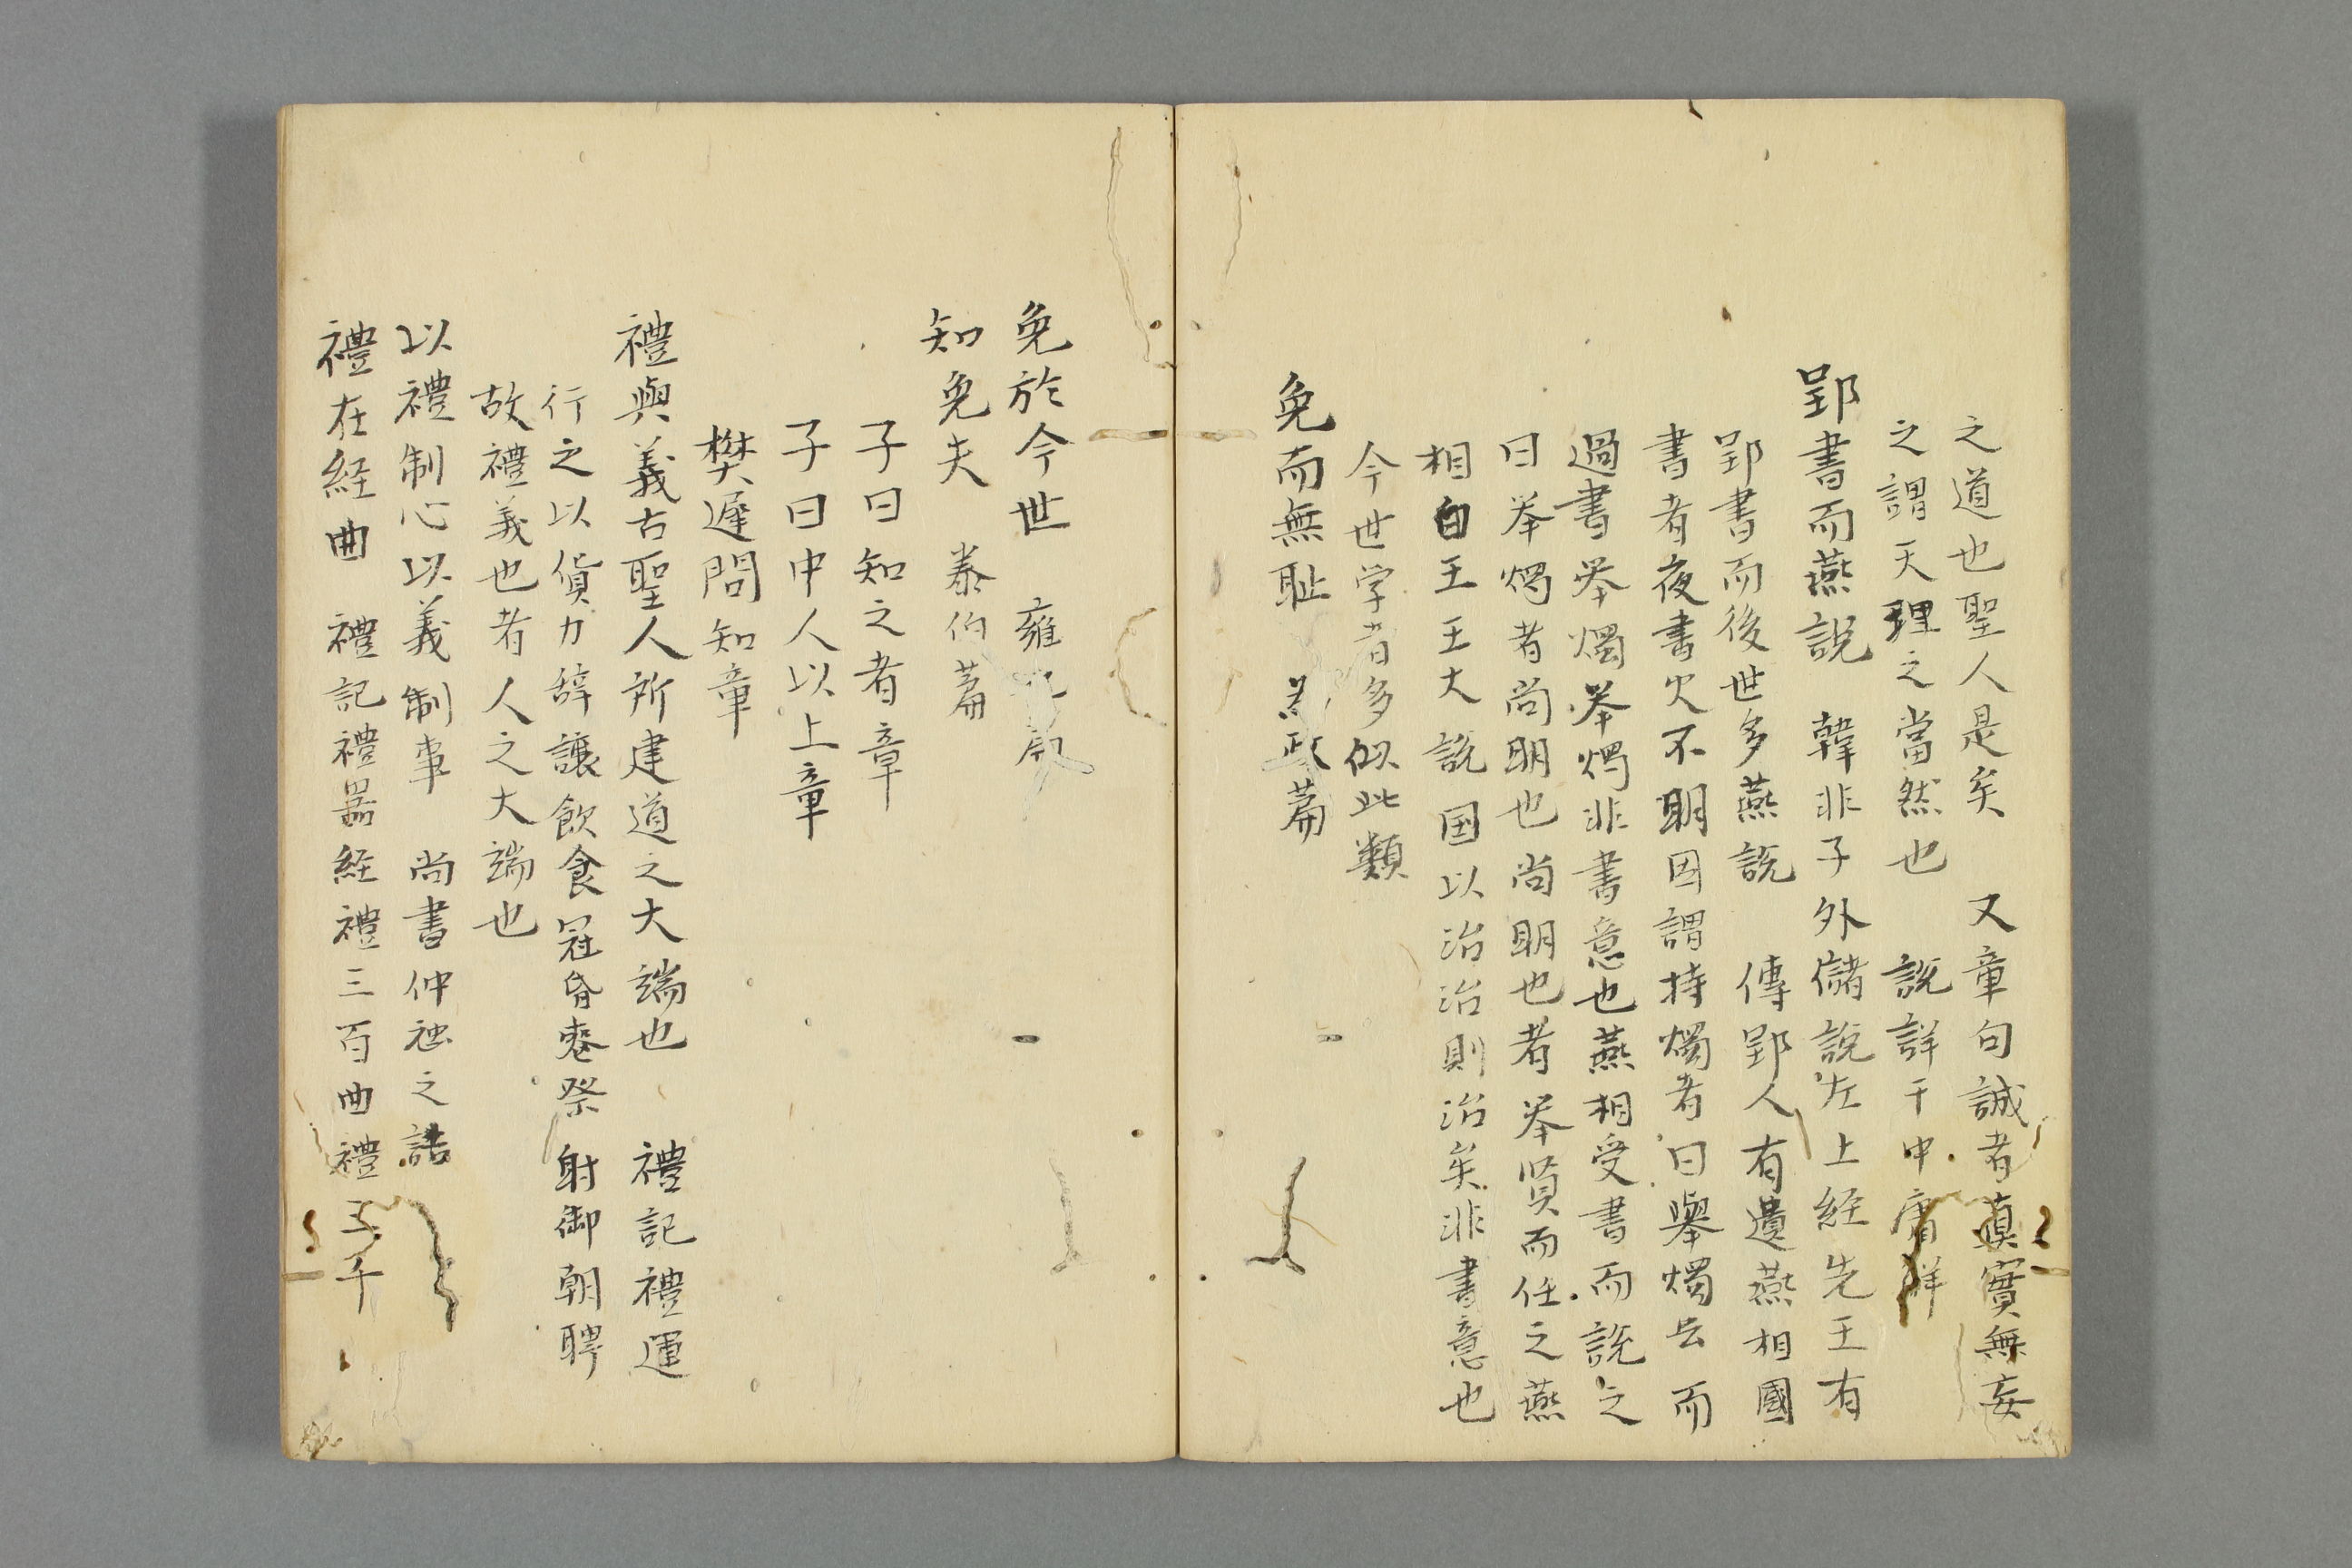 之道也聖人是矣　又章句誠者真實無妄
之謂天理之當然也　説詳于中庸詳
郢書而燕説　韓非子外儲説左上経先王有
郢書而後世多燕説　傳郢人有遺燕相國
書者夜書火不明因謂持燭者曰舉燭云而
過書举燭举燭非書意也燕相受書而説之
曰举燭者尚明也尚明也者举賢而任之燕
相白王王大説国以治治則治矣非書意也
今世学者多似此類
免而無耻　為政篇
免於今世　雍也
知免夫　泰伯篇
子曰知之者章
子曰中人以上章
樊遲問知章
禮與義古聖人所建道之大端也　禮記禮運
行之以貨力辞讓飲食冠昏喪祭射御朝聘
故禮義也者人之大端也
以禮制心以義制事　尚書仲虺之誥
禮在経曲　禮記禮器経禮三百曲禮三千